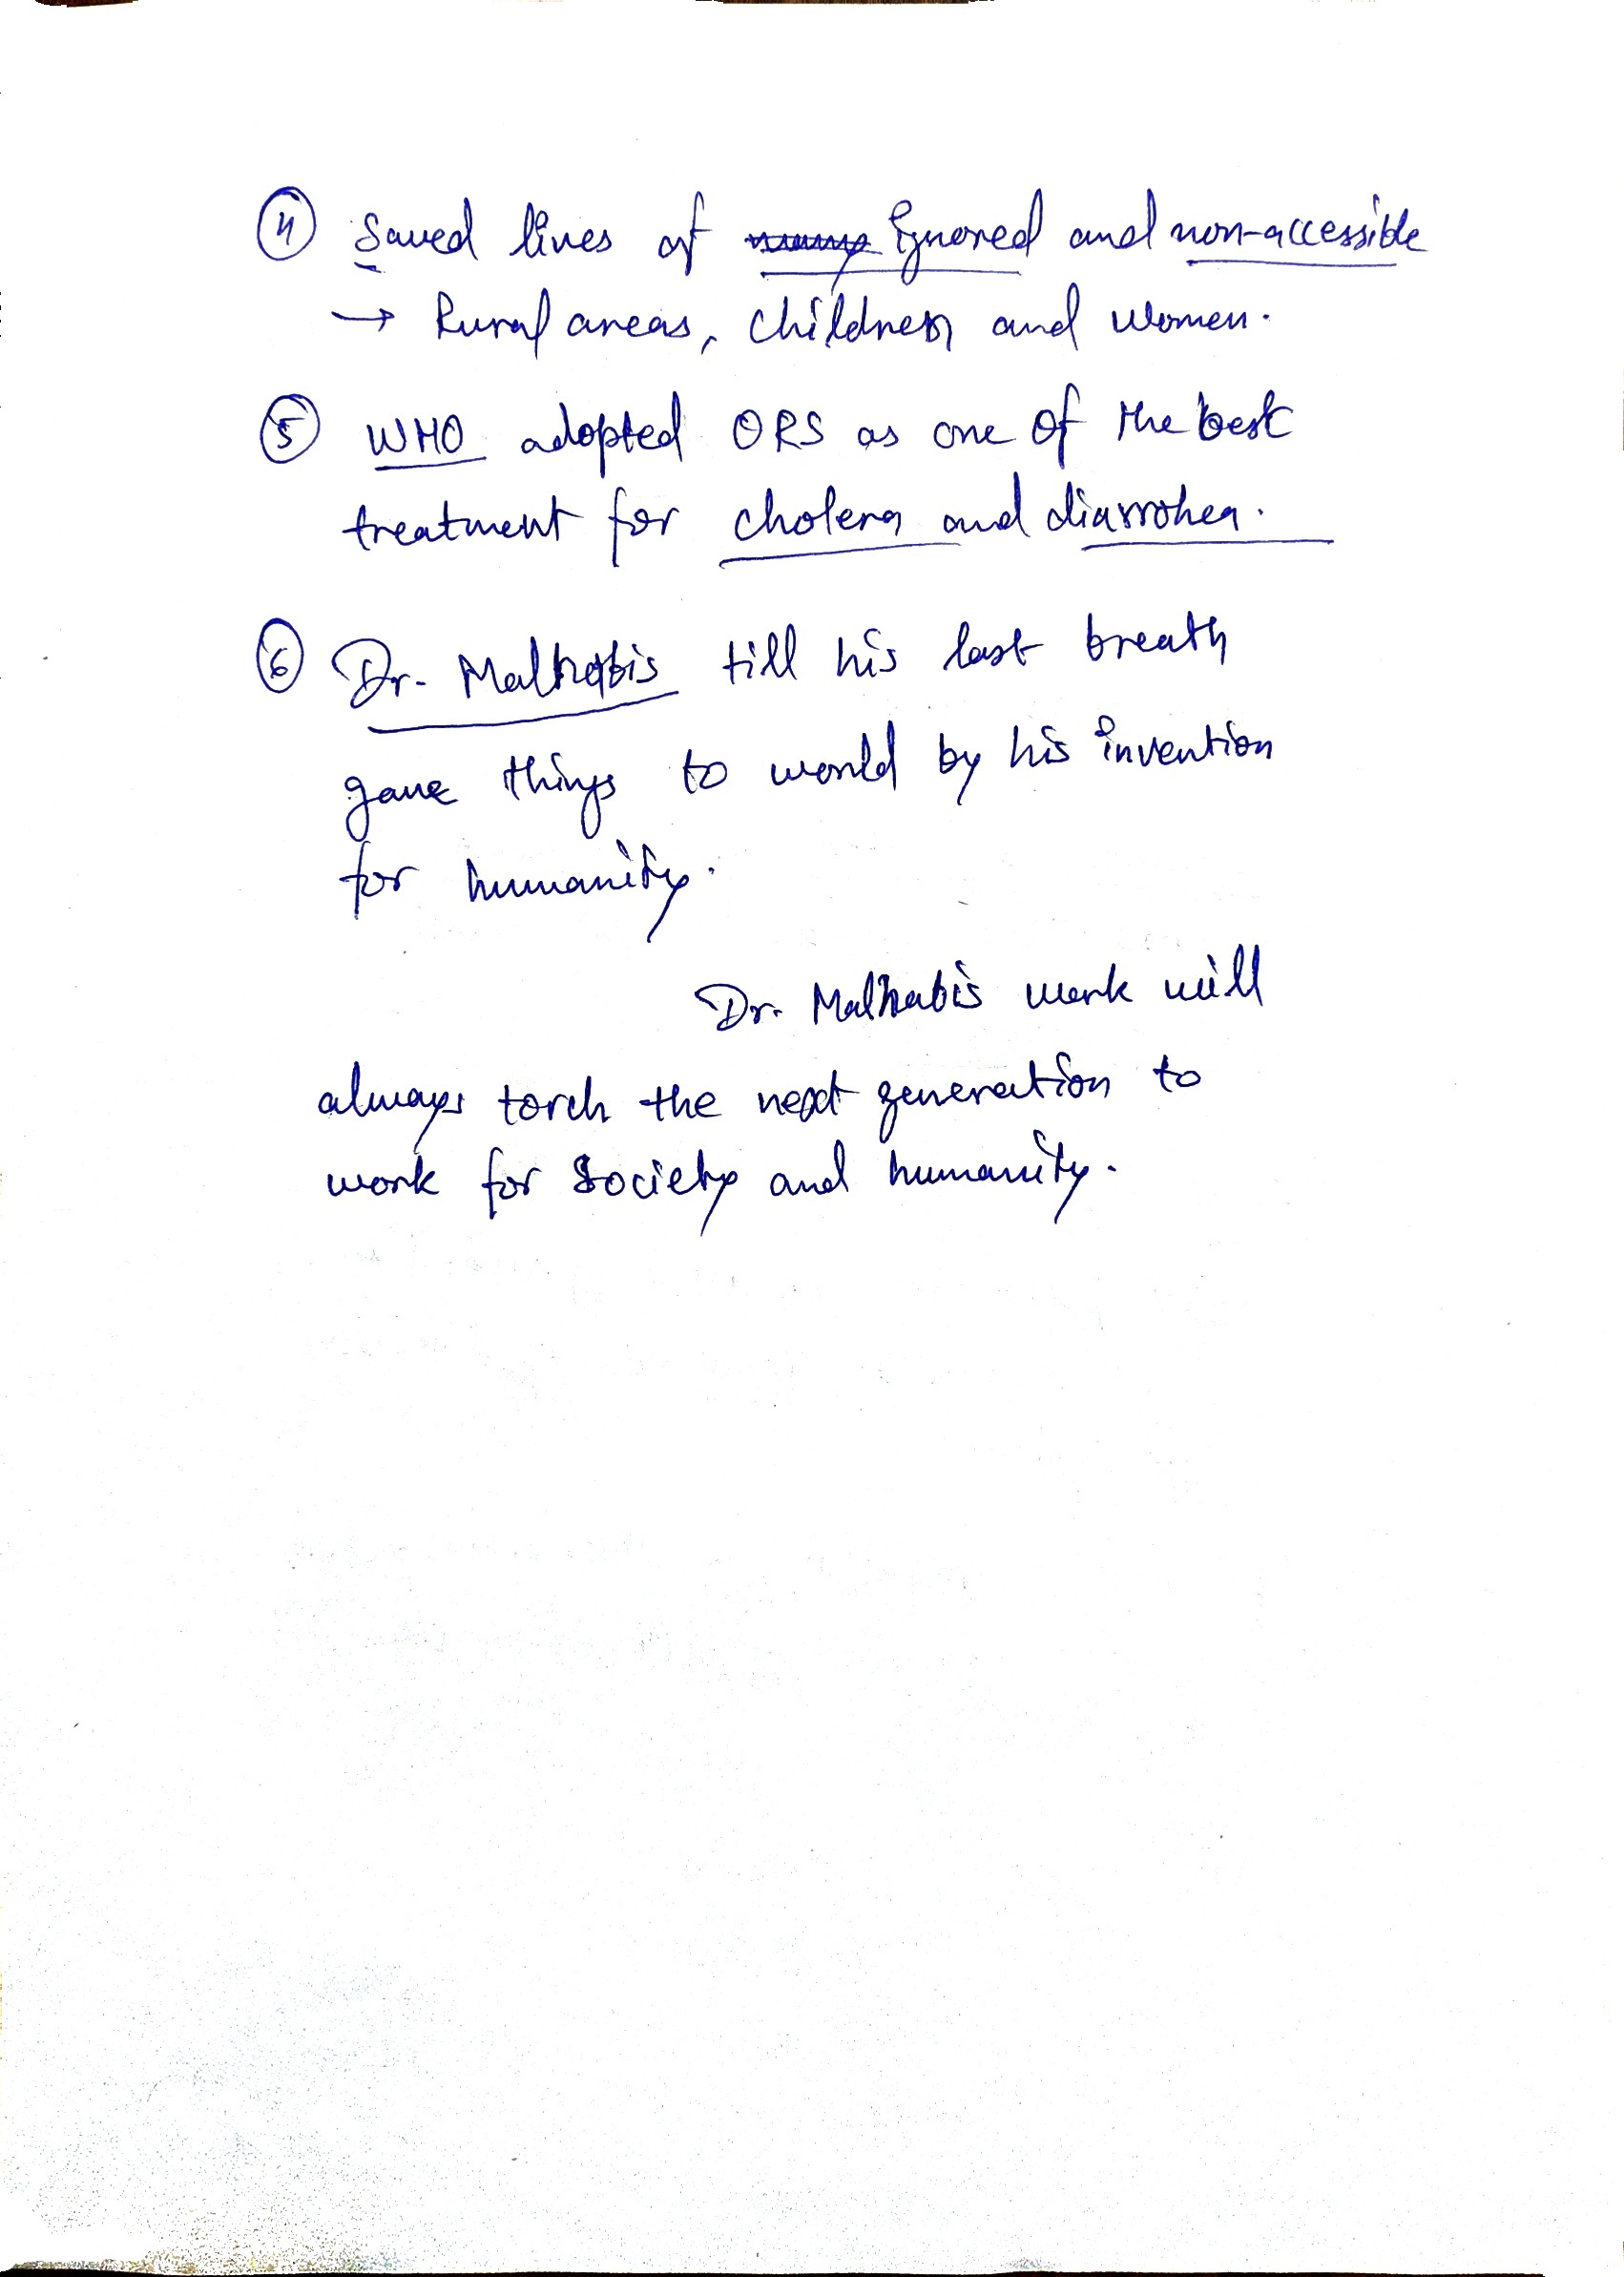 ④ Saved lives of ignored and non-accessible
→ Rural areas, children and women.
⑤ WHO adopted ORS as one of the best
treatment for cholera and diarrohea.
⑥ Dr. Malhabis till his last breath
gave things to world by his invention
for humanity.
Dr. Malhabis work will
always torch the next generation to
work for society and humanity.